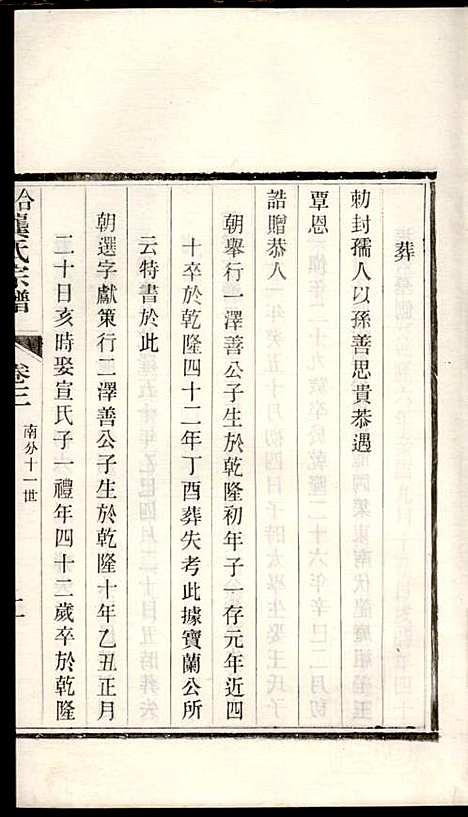 葬
勅封孺人以孫善思貴恭遇
覃恩
誥贈恭人
朝舉行一澤善公子生於乾隆初年子一存元年近四
十卒於乾隆四十二年丁酉葬失考此據寶蘭公所
云特書於此
朝選字獻策行二澤善公子生於乾隆十年乙丑正月
二十日亥時娶宣氏子一禮年四十二歲卒於乾隆
龔氏宗譜
卷三
南分十一世